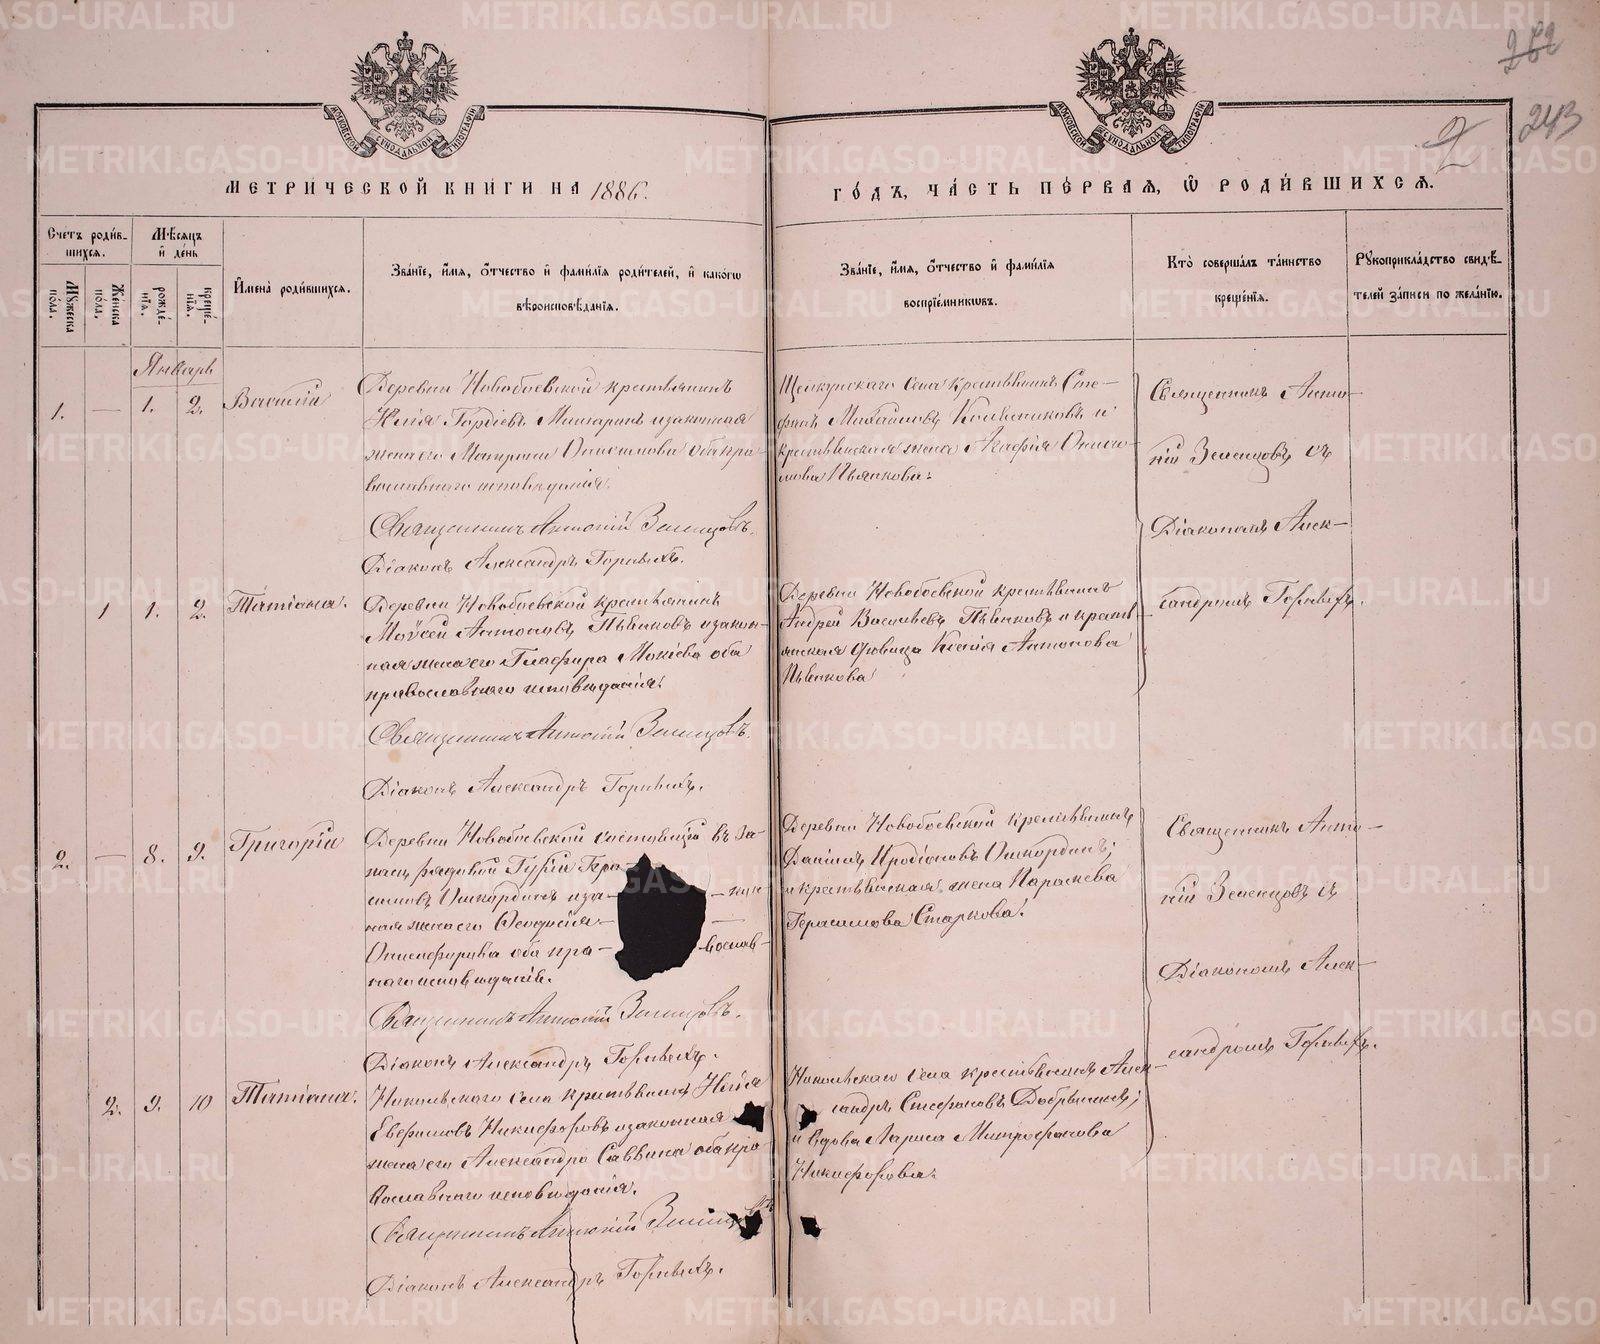 262
243
2
МОСКОВСКОЙ СѴНОДАЛЬНОЙ ТИПОГРАФІИ
МОСКОВСКОЙ СѴНОДАЛЬНОЙ ТИПОГРАФІИ
МЕТРИ́ЧЕСКОЙ КНИ́ГИ НА 1886.
ГО́ДЪ, ЧА́СТЬ ПЕ́РВАЯ, Ѡ РОДИ́ВШИХСЯ.
Сче́тъ роди́вшихся.
Му́жеска по́ла.
Же́нска по́ла.
Мѣ́сяцъ и де́нь
рожде́нія.
креще́нія.
Имена̀ роди́вшихся.
Зва́ніе, и́мя, о́тчество и фами́лія роди́телей, и како́гѡ
вѣроисповѣ́данія.
Зва́ніе, и́мя, о́тчество и фами́лія
воспріе́мникѡвъ.
Кто̀ соверша́лъ та́инство
креще́нія.
Рꙋкоприкла́дство свидѣ́-
телей за́писи по жела́нію.
Январь
1. — 1. 2. Василій
Деревни Новобоевской крестьянинъ
Гордіевъ изаконная
жена его Матрона обапра-
вославнаго исповѣданія.
Священникъ Антоній Зеленцовъ.
Діаконъ Александръ Горныхъ.
Щелкунскаго села крестьянинъ Сте-
фанъ Михайловъ Колясниковъ и
крестьянская жена Агафія
Пьянкова.
Священникъ Анто-
ній Зеленцовъ съ
Діакономъ Алек-
сандромъ Горныхъ.
1 1. 2. Татіана.
Деревни Новобоевской крестьянинъ
Моѵсей Антоновъ Пьянковъ изакон-
ная жена его Глафира Мокіева оба
православнаго исповѣданія.
Священникъ Антоній Зеленцовъ.
Діаконъ Александръ Горныхъ.
Деревни Новобоевской крестьянинъ
Андрей Васильевъ Пьянковъ и кресть-
янская дѣвица Ксенія Антонова
Пьянкова
2. — 8. 9. Григорій
Деревни Новобоевской состоящій въ за-
пасѣ рядовой Гурій Гера-
симовъ иза-
ная жена его Ѳеодосія
Онисифорова оба пра- -вослав-
наго исповѣданія.
Священникъ Антоній Зеленцовъ.
Діаконъ Александръ Горныхъ.
Деревни Новобоевской крестьянинъ
Даніилъ Иродіоновъ
и крестьянская жена Параскева
Герасимова Старкова.
Священникъ Анто-
ній Зеленцовъ съ
Діакономъ Алек-
сандромъ Горныхъ.
2. 9. 10 Татіана.
Никольскаго села крестьянинъ
Евфимовъ Никифоровъ изаконная
жена его Александра Саввина оба пра-
вославнаго исповѣданія.
Священникъ Антоній
Діаконъ Александръ Горныхъ.
Никольскаго села крестьянинъ Алек-
сандръ Стефановъ Добрынинъ;
и вдова Лариса Митрофанова
Никифорова.